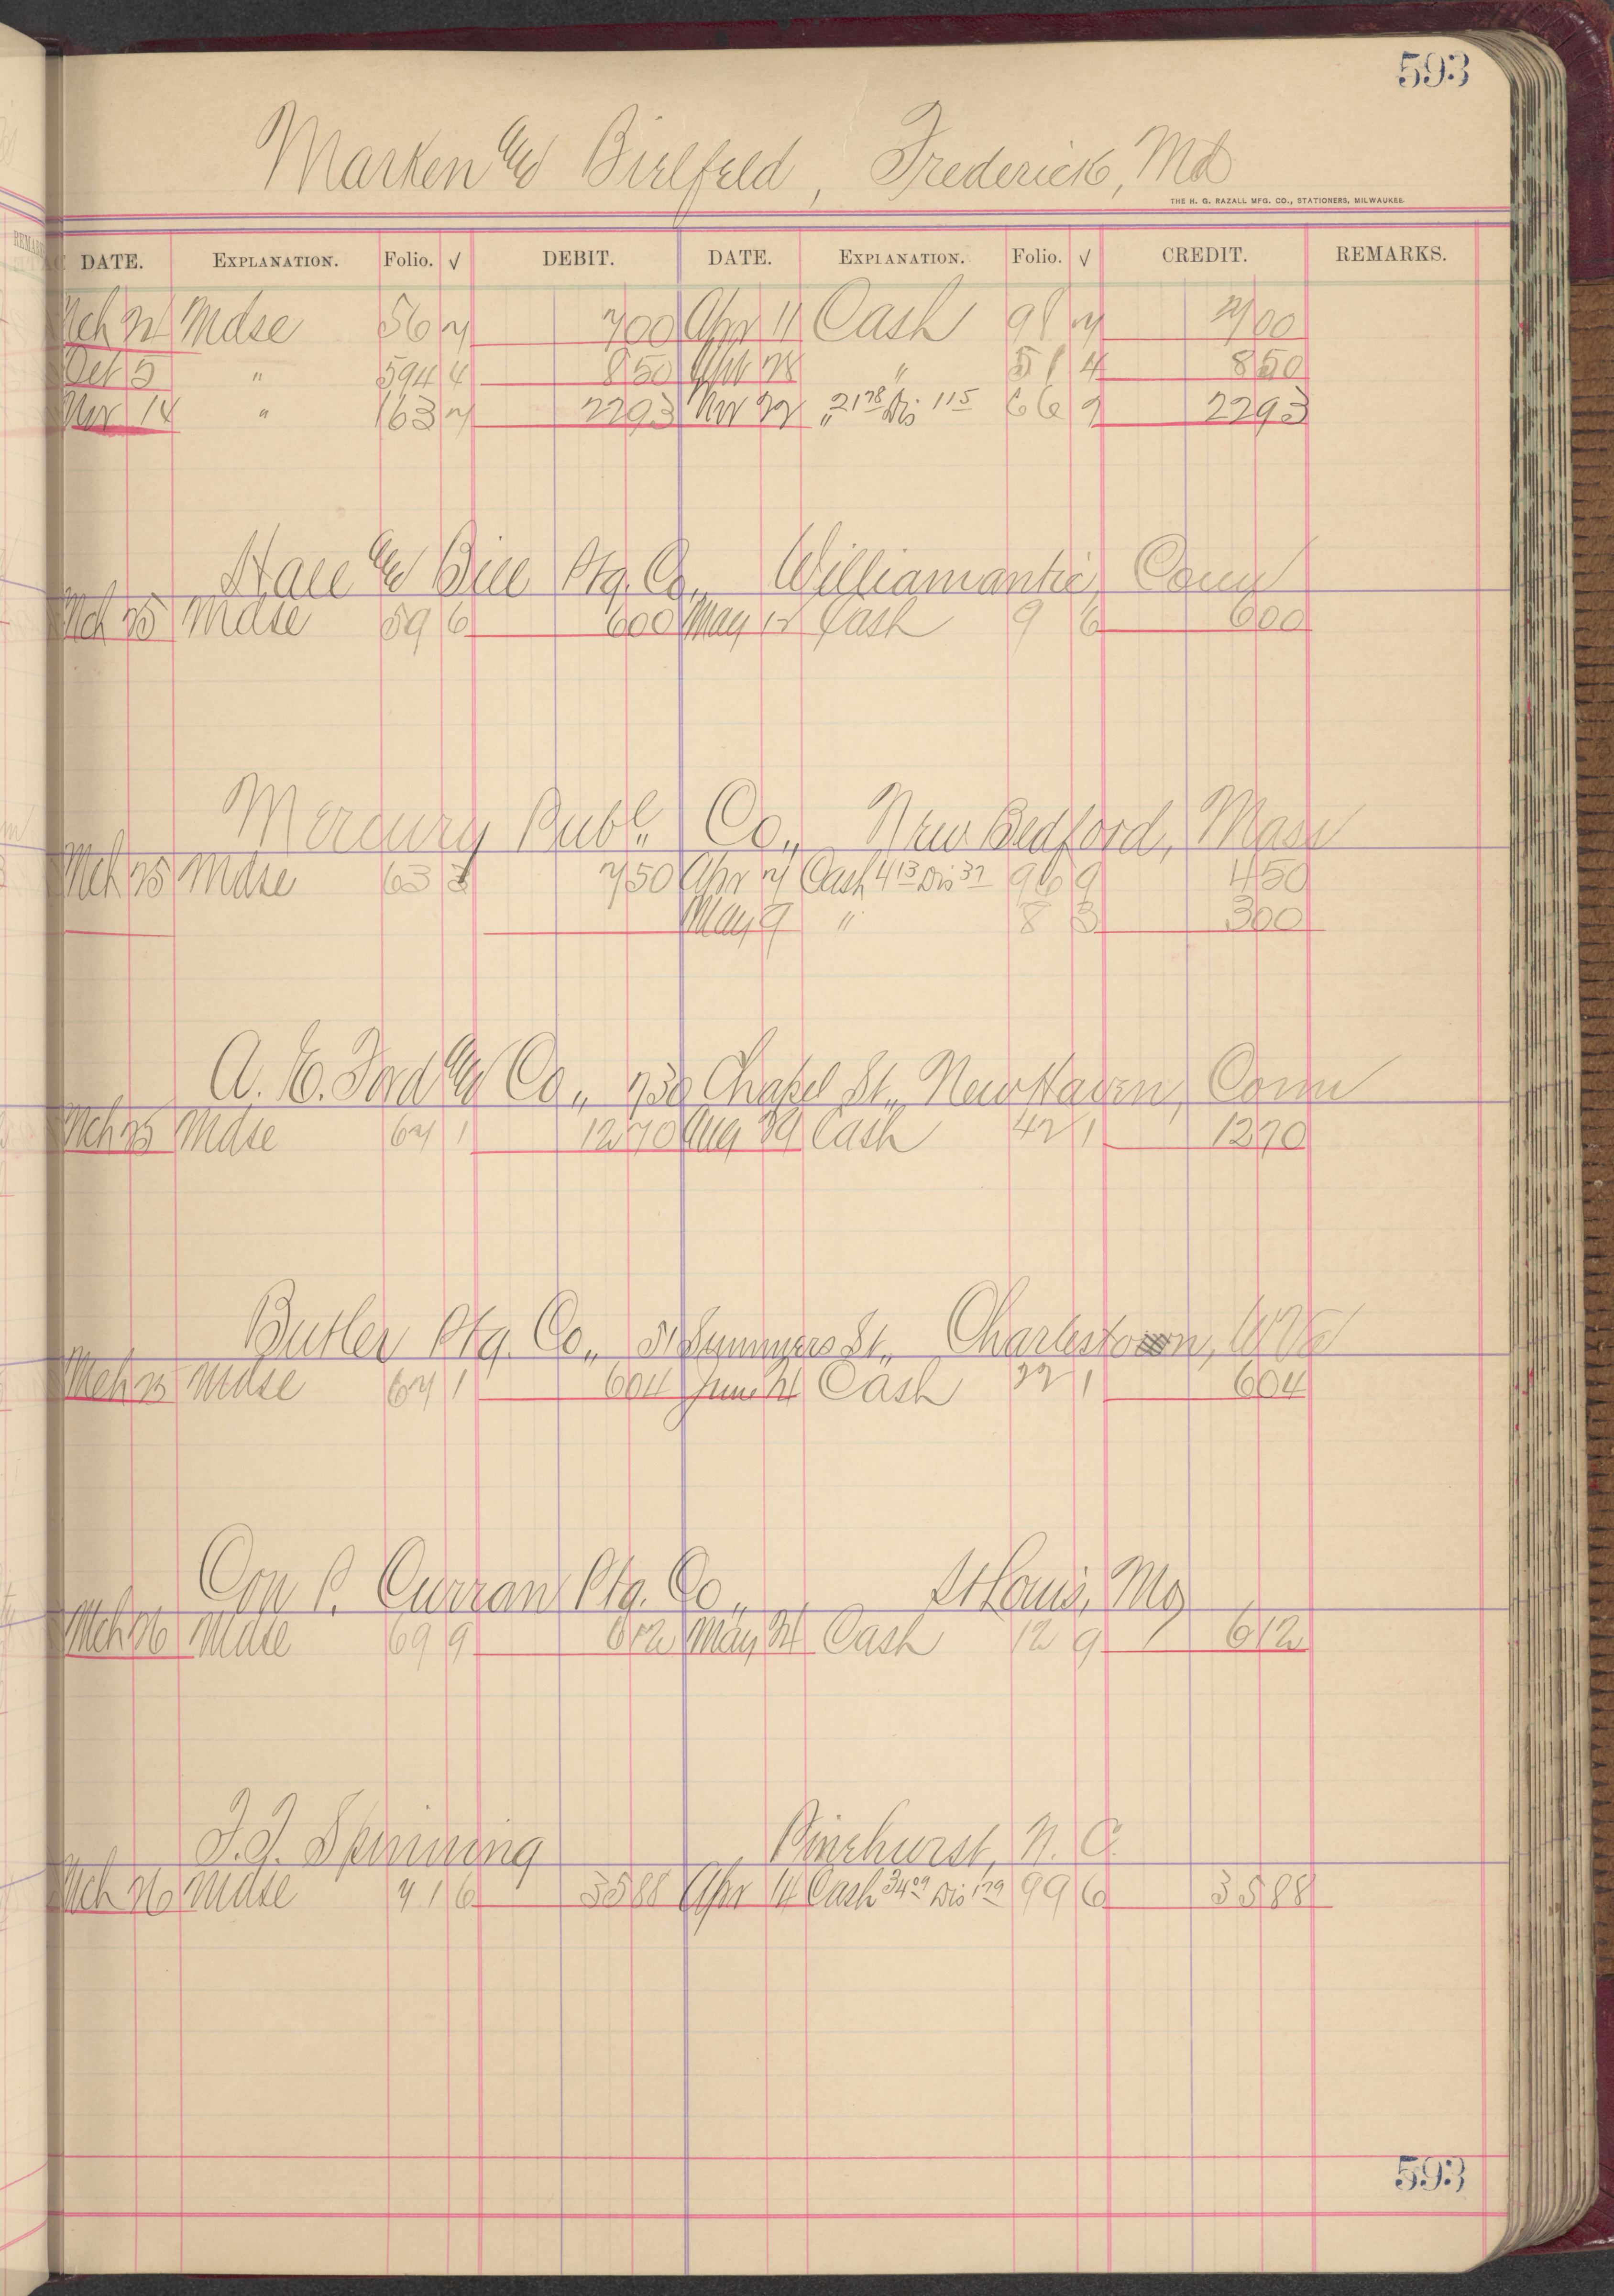 593
Marken and Bielfeld, Frederick, Md
THE H. G. RAZALL MFG. CO., STATIONERS, MILWAUKEE.
DATE. EXPLANATION. Folio. √ DEBIT. DATE. EXPLANATION. Folio. √ CREDIT. REMARKS.
Mch 22 Mdse 56 2 700 Apr 11 Cash 98 2 700
Oct 5 " 594 4 850 28 " 51 4 850
Nov 14 " 163 2 2293 Nov 22 " 21 78 Dis 1 15 66 2 2293
Hall and Bill Ptg. Co., Williamantic, Conn
Mch 25 Mdse 59 6 600 May 12 Cash 9 6 600
Mercury Publ. Co., New Bedford, Mass
Mch 25 Mdse 63 3 750 Apr 7 Cash 4 13 Dis 37 96 9 450
May 9 " 8 3 300
A. E. Ford and Co., 730 Chapel St., New Haven, Conn
Mch 25 Mdse 67 1 1270 Aug 29 Cash 42 1 1270
Butler Ptg. Co., 51 Summers St., Charleston, W Va
Mch 25 Mdse 67 1 604 June 24 Cash 22 1 604
Con P. Curran Ptg. Co., St Louis, Mo
Mch 26 Mdse 69 9 612 May 24 Cash 12 9 612
Spinning Pinehurst, N. C.
Mch 26 Mdse 71 6 3588 Apr 14 Cash 34 09 Dis 1 79 99 6 3588
593